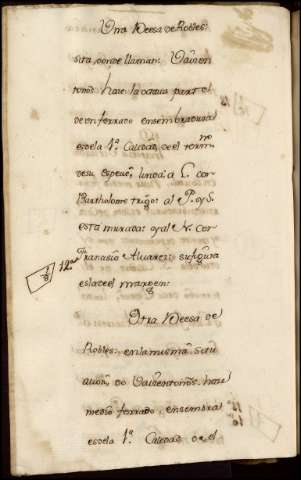 Otra Deesa de Robles:
sita, donde llaman: Dauien
tonos, hace la octaua parte
de un ferrado ensembradura
es de la 1ª Calidad, de el term.no
de su especie, linda: a L. con
Bartholome trigo: al P. y S.
esta murada: y al N. con
12ª Franasio Aluarez: su figura
es la de el margen:
Otra Deesa de
Robles: en la misma, situ
auon, do Dauientonos, hace
medio ferrado, ensembra
es de la 1ª Calidad de el